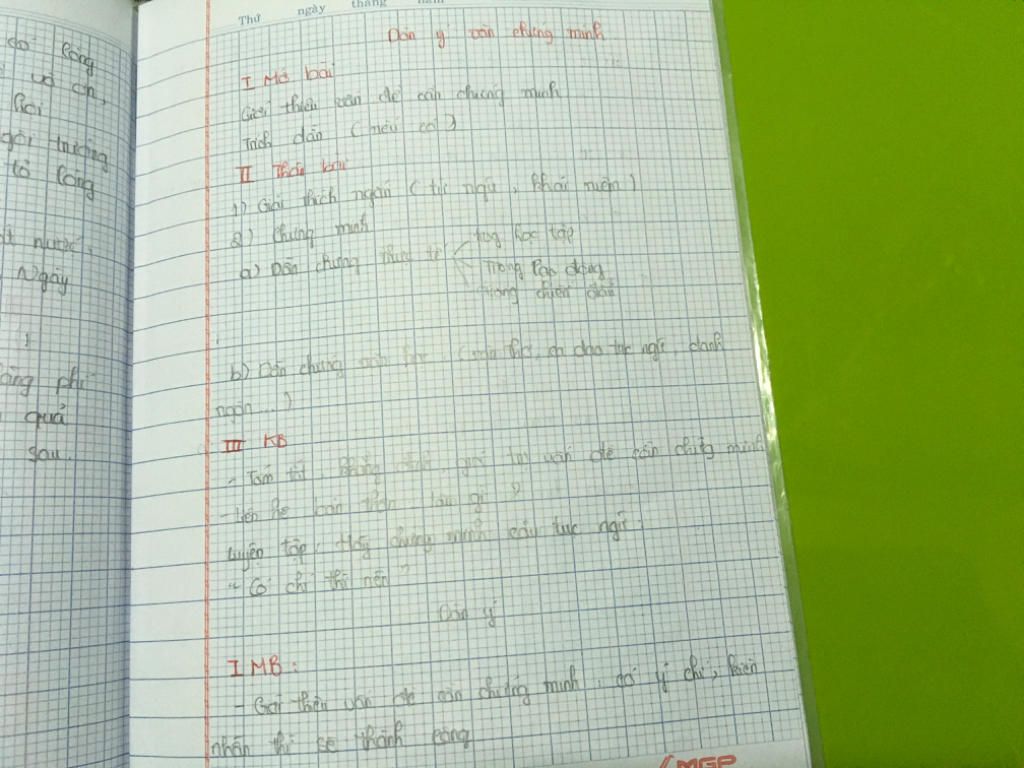 đó lòng
và ơn,
hai
gôi trường
tỏ lòng
nước.
Ngày
phí
quả
sau.
Thứ ngày tháng năm
Dàn ý văn chứng minh
I Mở bài
Giới thiệu vấn đề cần chứng minh
Trích dẫn (nếu có)
II Thân bài
1) Giải thích ngắn (từ ngữ, khái niệm)
2) Chứng minh
a) Dẫn chứng thực tế
trong học tập
Trong lao động
trong chiến đấu
b) Dẫn chứng văn học (thơ, ca dao tục ngữ, danh
ngôn...)
III KB
- Tóm tắt, khẳng định, giá trị vấn đề cần chứng minh
- liên hệ bản thân làm gì?
luyện tập: Hãy chứng minh câu tục ngữ:
"Có chí thì nên"
Dàn ý
I MB:
- Giới thiệu vấn đề cần chứng minh, có ý chí, kiên
nhẫn thì sẽ thành công
MGP